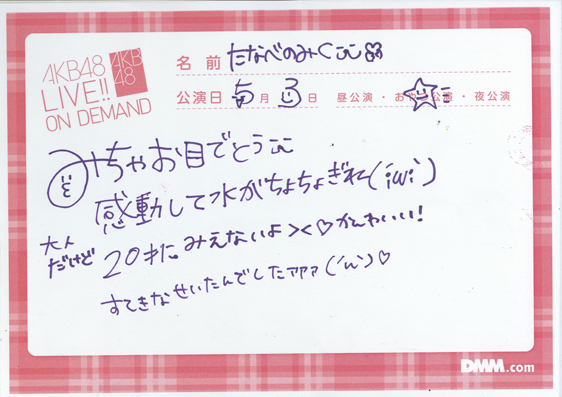 AKB48
LIVE!!
ON DEMAND
AKB
48
名前 たなべのみく
公演日 5月 3日 昼公演・おやつ公演・夜公演
みちゃお目でとう
感動して水がちょちょぎれて(;ω;)
大人だけど
20才にみえないよ><♡かんわいい!
すてきなせいたんでしたァァァ('ω')♡
DMM.com